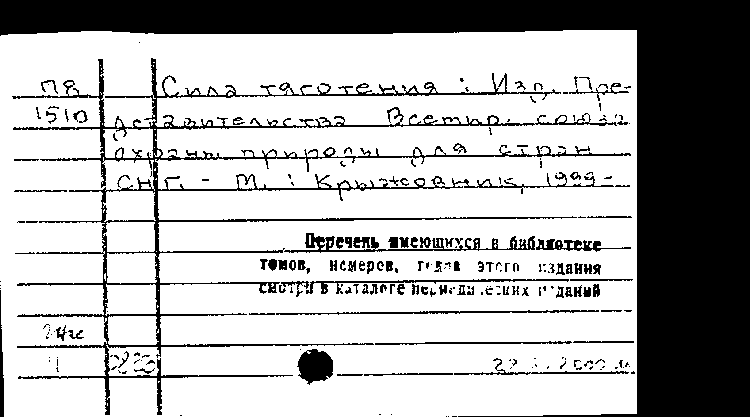 П8 Сила тяготения : Изд. Пре-
1510 дставительства Всемир. союза
охраны природы для стран
СНГ. - М. : Крыжовник, 1999-
Перечень имеющихся в библиотеке
томов, номеров, годов этого издания
смотри в каталоге периодических изданий